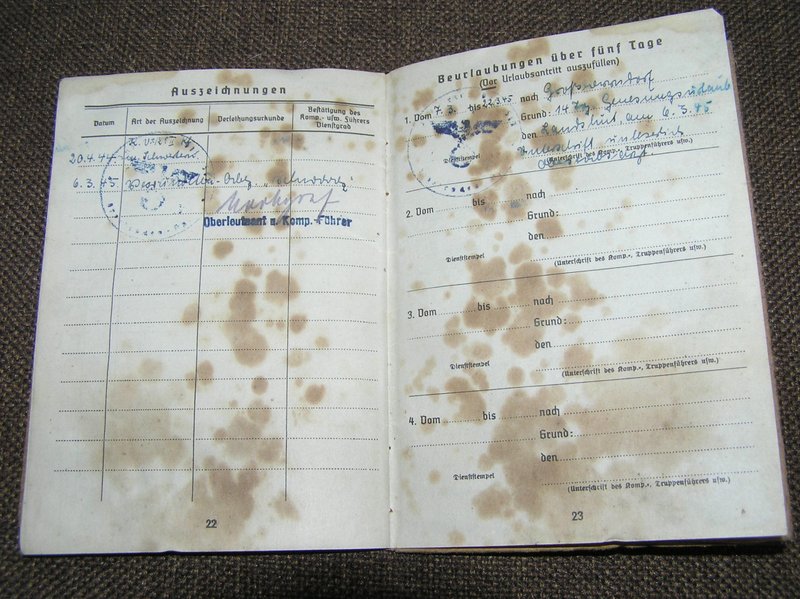 Auszeichnungen
Datum
Art der Auszeichnung
Verleihungsurkunde
Bestätigung des
Komp.- usw. Führers
Dienstgrad
20.4.44
6.3.45
Oberleutnant u. Komp.-Führer
22
Beurlaubungen über fünf Tage
(Vor Urlaubsantritt auszufüllen)
1. Vom 7.3. bis 22.3.45 nach
Grund: 14 Tg. Genesungsurlaub
den Landshut, am 6.3.45
Dienststempel
(Unterschrift des Komp.-, Truppenführers usw.)
2. Vom bis nach
Grund:
den
Dienststempel
(Unterschrift des Komp.-, Truppenführers usw.)
3. Vom bis nach
Grund:
den
Dienststempel
(Unterschrift des Komp.-, Truppenführers usw.)
4. Vom bis nach
Grund:
den
Dienststempel
(Unterschrift des Komp.-, Truppenführers usw.)
23